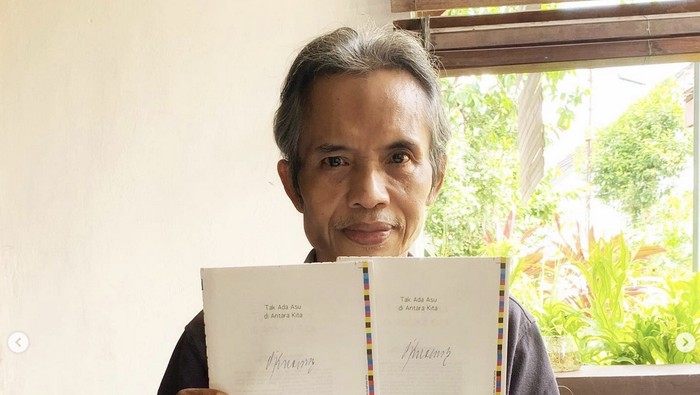 Tak Ada Asu
di Antara Kita
Tak Ada Asu
di Antara Kita